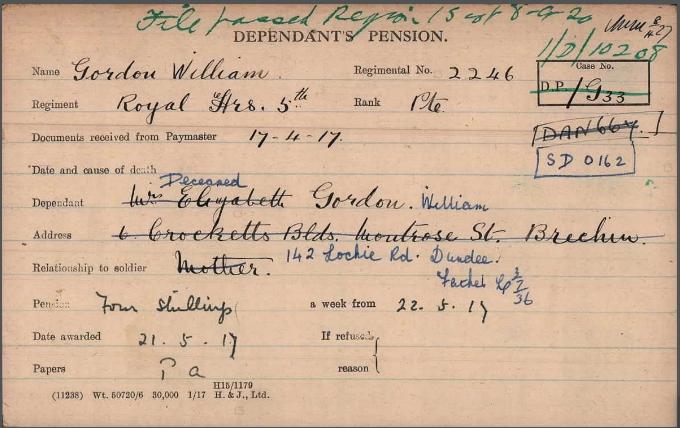 File passed Region 1 S 8-9-20
DEPENDANT'S PENSION.
1/D/10208
Name Gordon William. Regimental No. 2246
Case No.
D.P./G33
Regiment Royal Hrs. 5th Rank Pte
Documents received from Paymaster 17-4-17.
DAN664.
SD 0162
Date and cause of death
Deceased
Dependant Mrs Elizabeth Gordon. William
Address 6. Crocketts Blds. Montrose St. Brechin.
Relationship to soldier Mother. 142 Lochie Rd. Dundee.
Father 3/2/36
Pension Four shillings a week from 22.5.17
Date awarded 21.5.17 If refused
Papers P a reason
H15/1179
(11238) Wt. 50720/6 30,000 1/17 H. & J., Ltd.